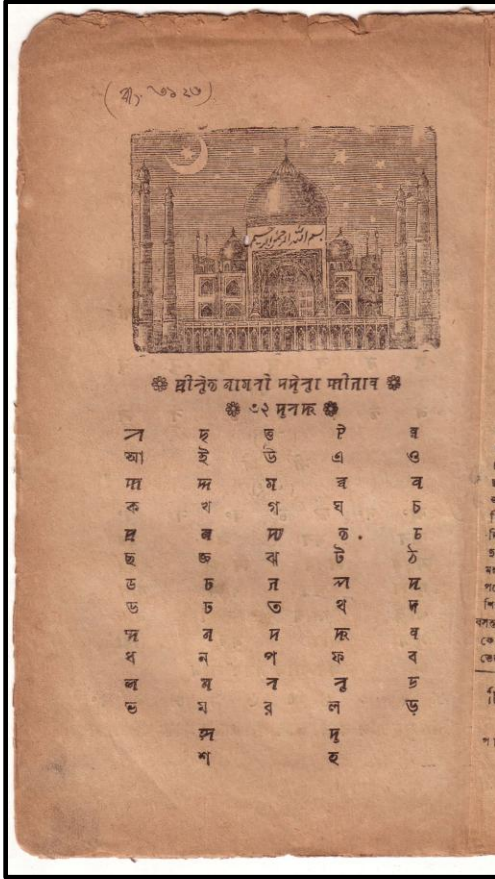 بسم الله الرحمن الرحيم
৩২ ꠢꠞꠚ
ꠀ ꠁ ꠃ ꠄ ꠅ
আ ই উ এ ও
ꠇ ꠈ ꠉ ꠊ ꠌ
ক খ গ ঘ চ
ꠍ ꠎ ꠏ ꠐ ꠑ
ছ জ ঝ ট ঠ
ꠒ ꠓ ꠔ ꠕ ꠖ
ড ঢ ত থ দ
ꠗ ꠘ ꠙ ꠚ ꠛ
ধ ন প ফ ব
ꠜ ꠝ ꠞ ꠟ ꠠ
ভ ম র ল ড়
ꠡ ꠢ
শ হ